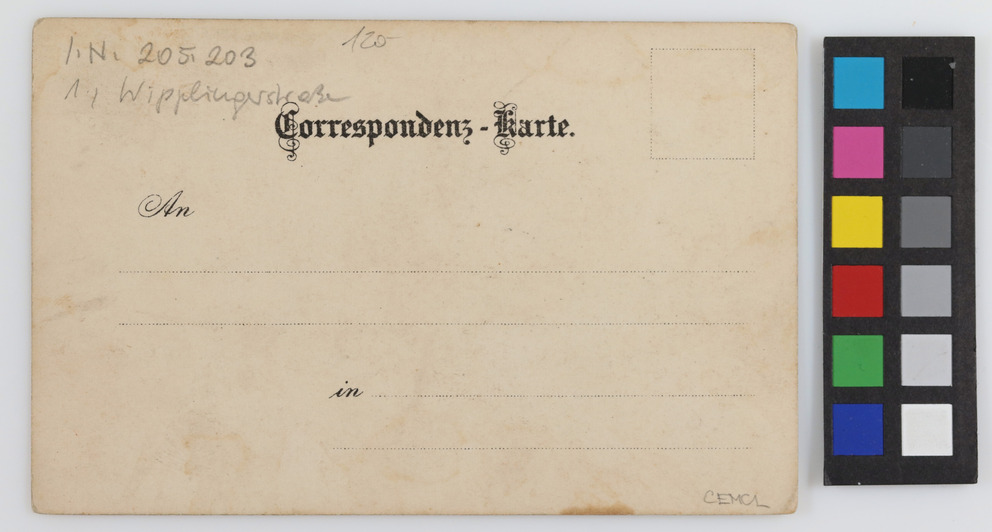 I.N. 205.203
120-
1., Wipplingerstraße
Correspondenz-Karte.
An
in